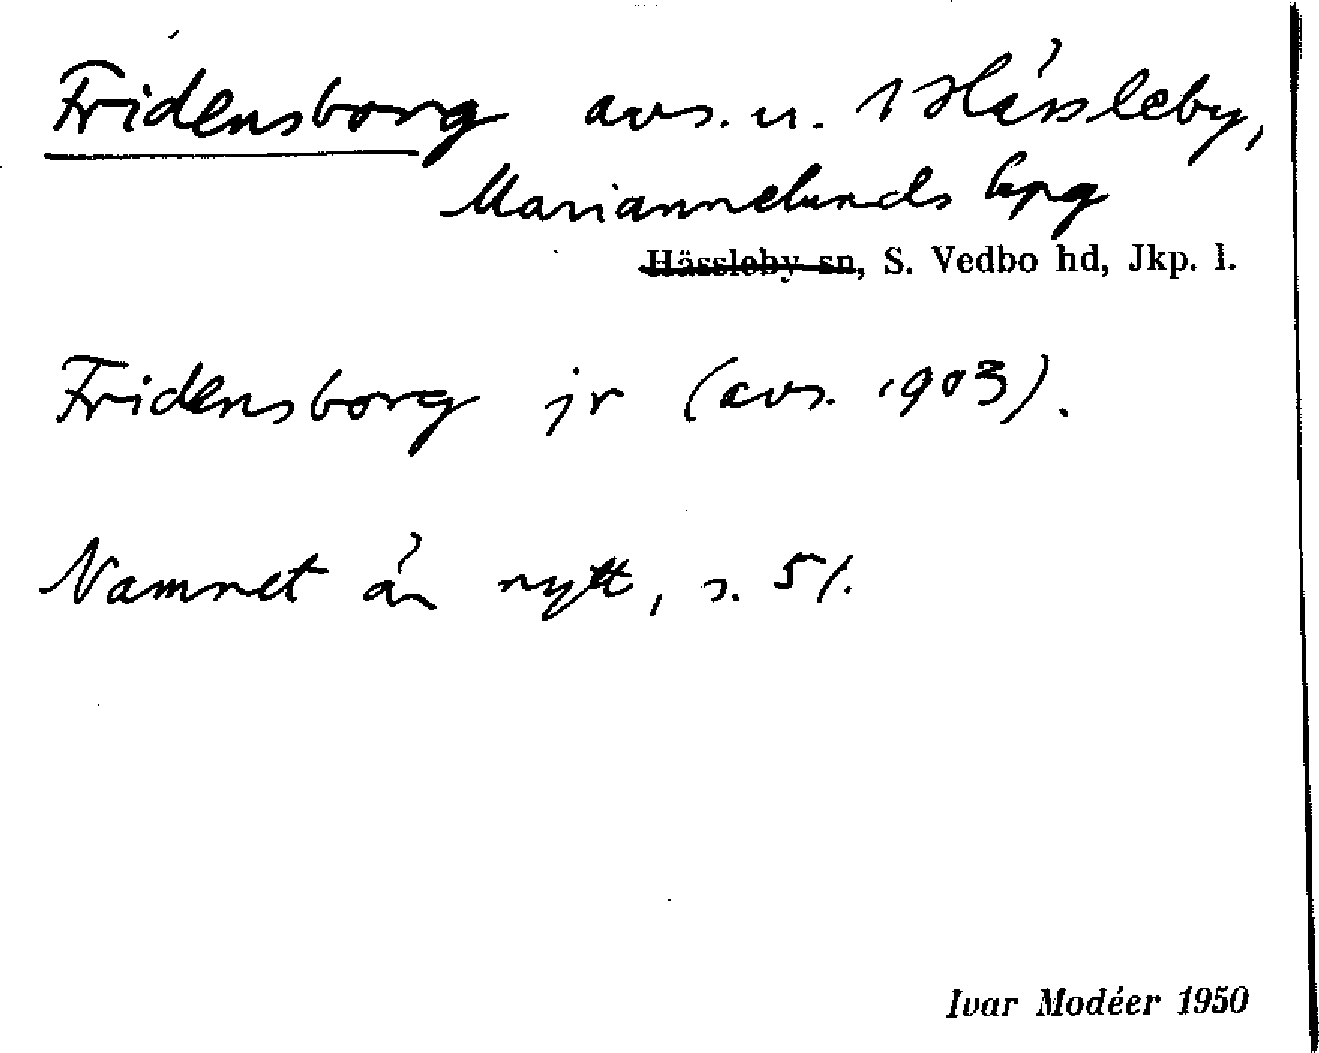 Fridensborg avs. u. 1 Hässleby,
Mariannelunds kpg
Hässleby sn, S. Vedbo hd, Jkp. l.
Fridensborg jr (avs. 1903).
Namnet är nytt, s. 51.
Ivar Modéer 1950